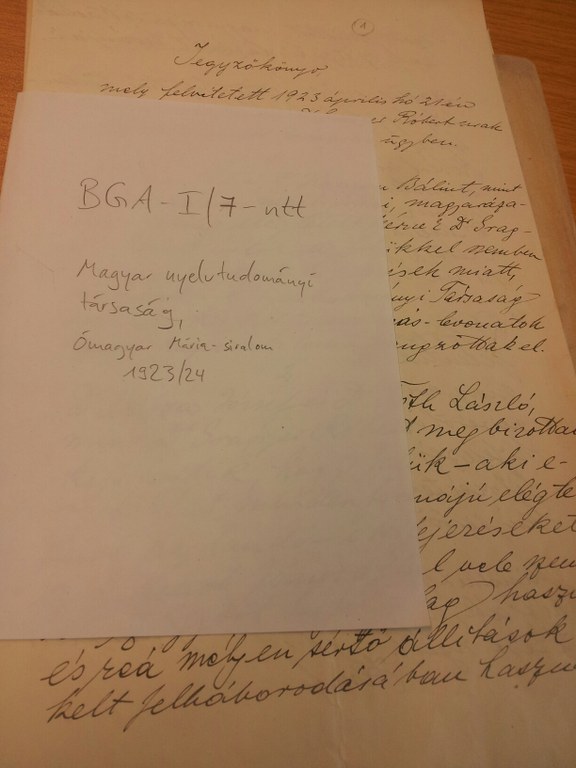 1
Jegyzőkönyv
mely felvétetett 1923 április hó 2
Róbert urak
ügyben.
BGA-I/7-ntt
Magyar nyelvtudományi
társaság,
Ómagyar Mária-siralom
1923/24
Bálint, mint
magyaráza-
ükkel szemben
ések miatt,
nyi Társaság
ás-levonatok
László,
megbizottai
ük - aki e-
nájú elégté
fejezéseket
l vele szem
hasz
és reá mélyen sértő állítások
kelt felháborodásában haszn